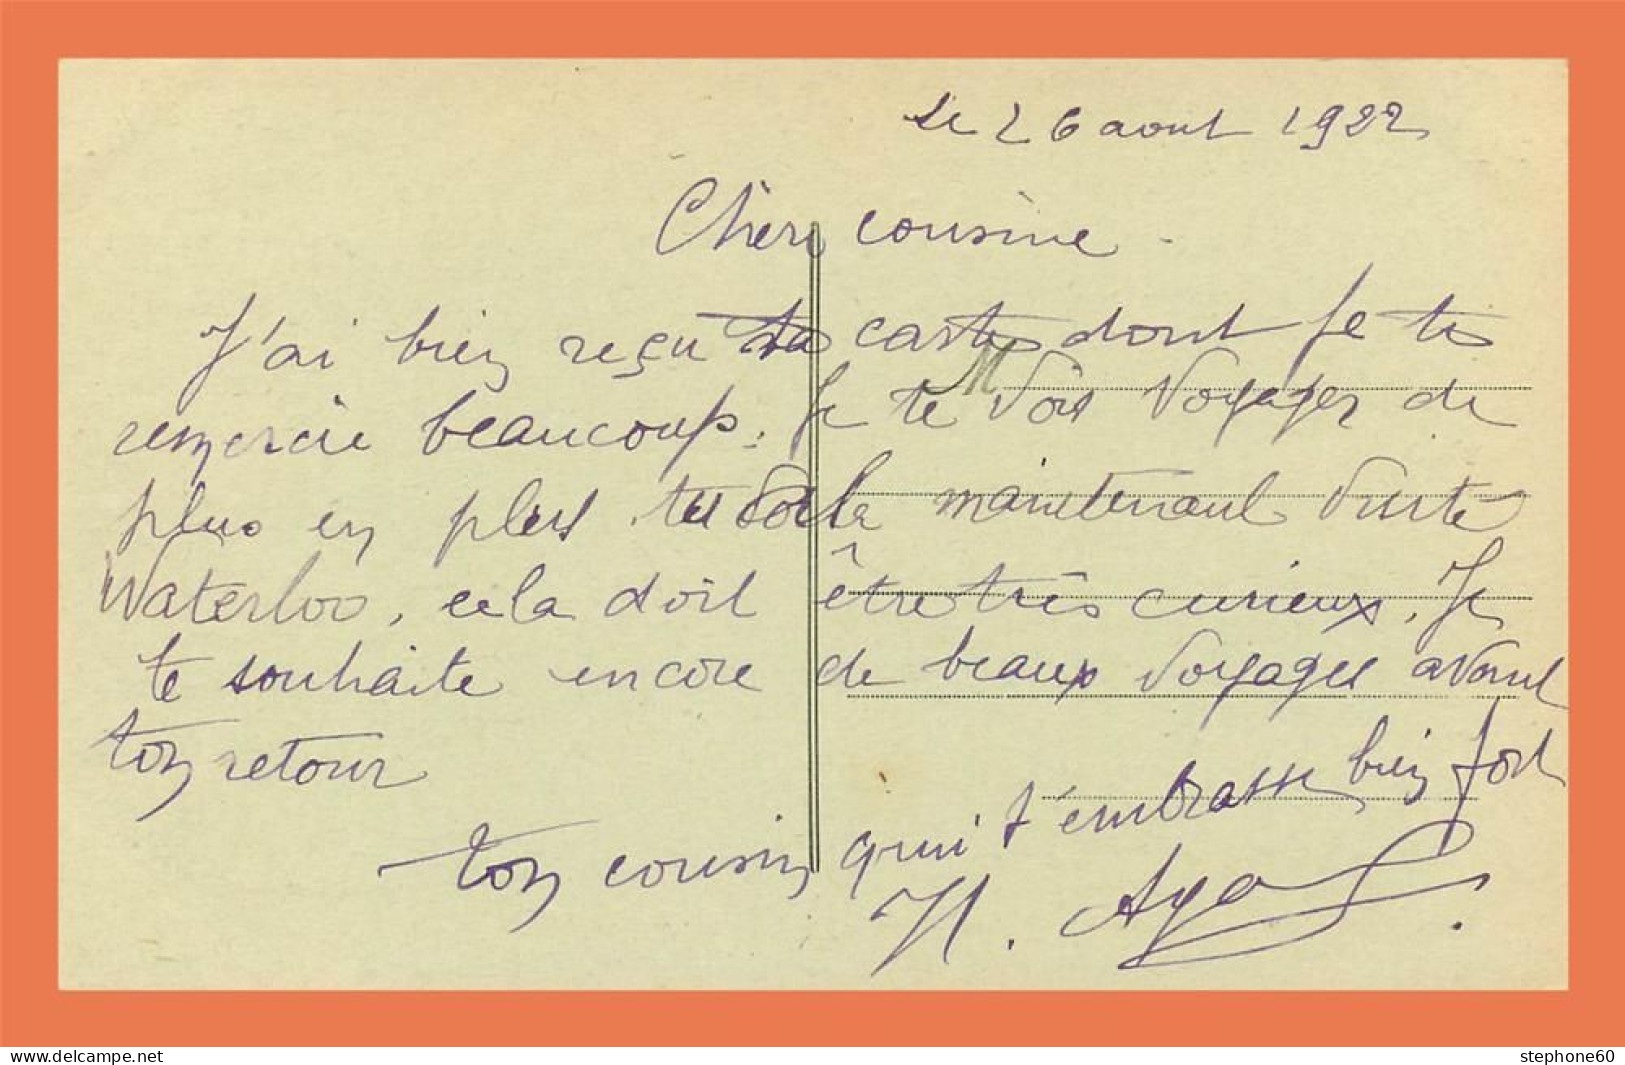 Le 26 aout 1922
Chère cousine
J'ai bien reçu ta carte dont je te
remercie beaucoup. Je te vois voyager de
plus en plus. te voila maintenant visité
Waterloo, cela doit être très curieux. Je
te souhaite encore de beaux voyages avant
ton retour
ton cousin qui t'embrasse bien fort
H.
www.delcampe.net
stephone60